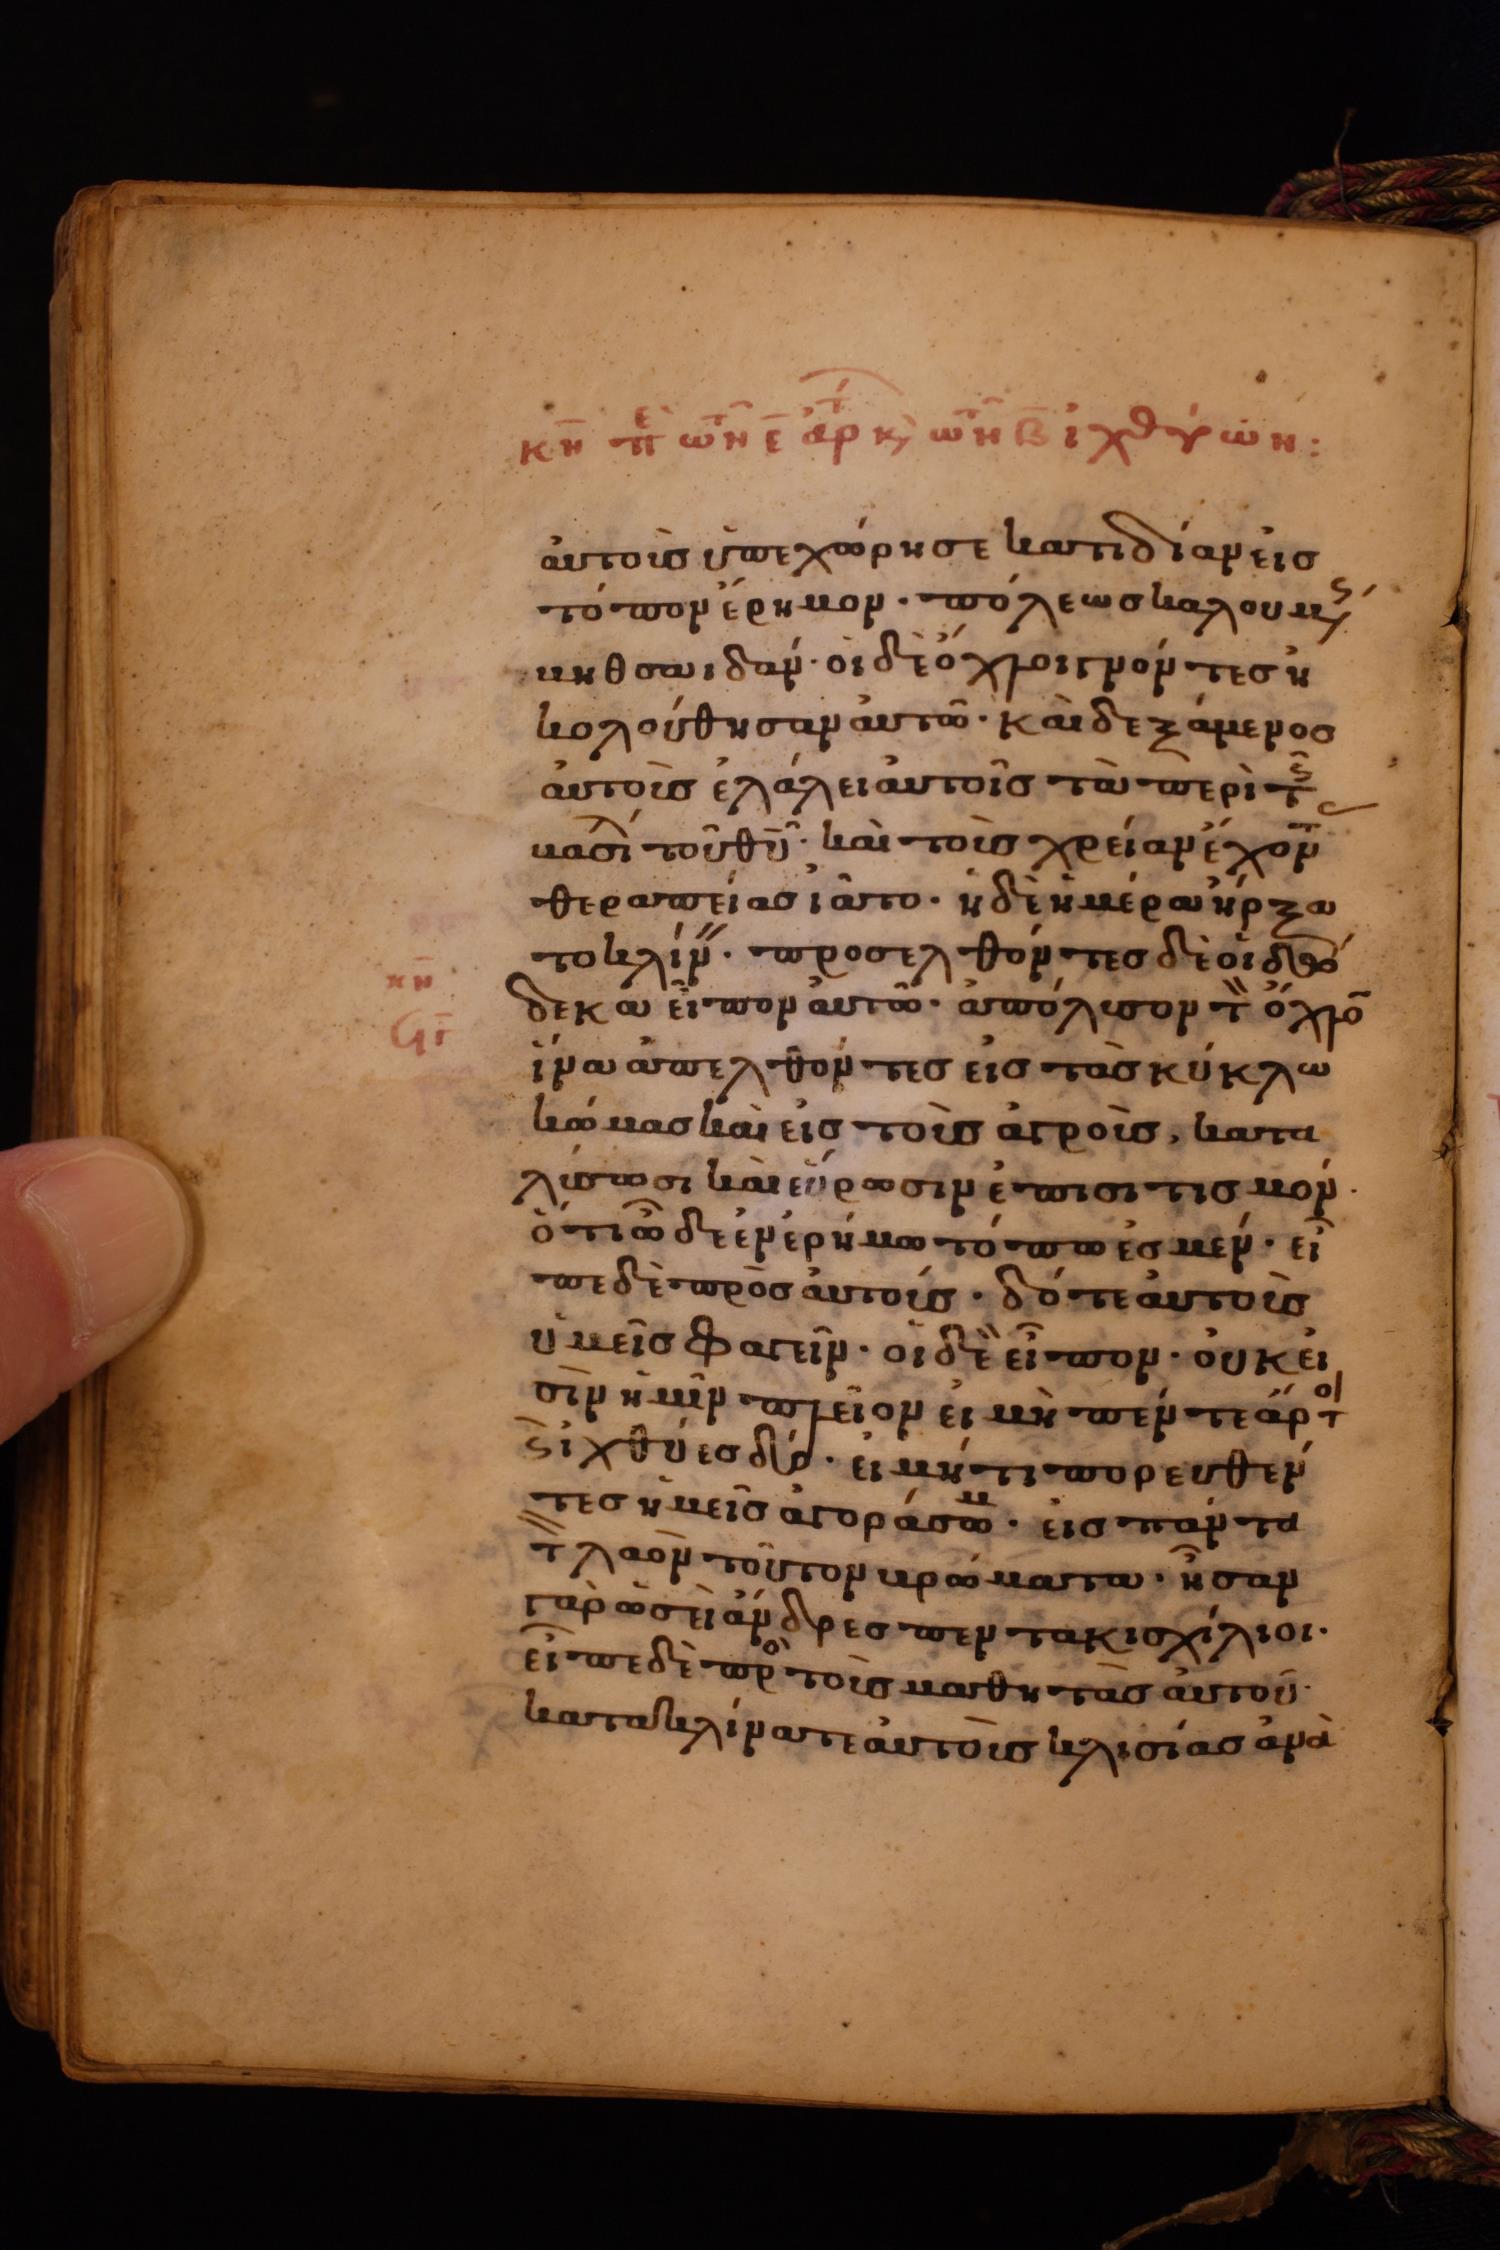 κη πε τῶν ε ἄρτ κ(αὶ) τῶν β ἰχθύων:
ἀυτοὺς ὑπεχώρησε κατιδίαν εἰσ
τόπον ἔρημον · πόλεωσ καλουμένησ
βηθσαιδάν · οἱ δὲ ὄχλοι γνόντεσ ἠ
κολούθησαν ἀυτῶ · καὶ δεξάμενοσ
ἀυτοὺς ἐλάλει ἀυτοῖσ τὰ περὶ τῆσ
βασι τοῦ θῦ · καὶ τοὺς χρείαν ἔχοντ
θεραπείασ ἰᾶτο · ἡ δὲ ἡμέρα ἤρξα
το κλίν · προσελθόντεσ δὲ οἱ δώ
κη
δεκα εἶπον ἀυτῶ · ἀπόλυσον τ ὄχλο
ϟγ
ἵνα ἀπελθόντεσ εἰσ τὰσ κύκλω
κώμασ καὶ εἰσ τοὺς ἀγροὺς, κατα
λύσωσι καὶ εὕρωσιν ἐπισιτισμόν ·
ὅτι ὧδε ἐν ἐρήμω τόπω ἐσμέν · εἶ
πε δὲ πρὸσ ἀυτούς · δότε ἀυτοῖς
ὑμεῖσ φαγεῖν · οἱ δὲ εἶπον · οὐκ εἰ
σὶν ἡμῖν πλεῖον εἰ μὴ πέντε ἄρτοι
ϛ ἰχθύεσ δύο · εἰ μή τι πορευθέν
τεσ ἡμεῖσ ἀγοράσωμ · εἰσ πάντα
τ λαὸν τοῦτον βρώματα · ἦσαν
γὰρ ὡσεὶ ἄνδρεσ πεντακισχίλιοι ·
εἶπε δὲ πρὸ τοὺς μαθητὰσ ἀυτοῦ ·
κατακλίνατε ἀυτοὺς κλισίασ ἀνὰ